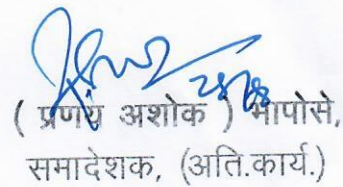 ( प्रणय अशोक ) भापोसे,
समादेशक, (अति.कार्य.)